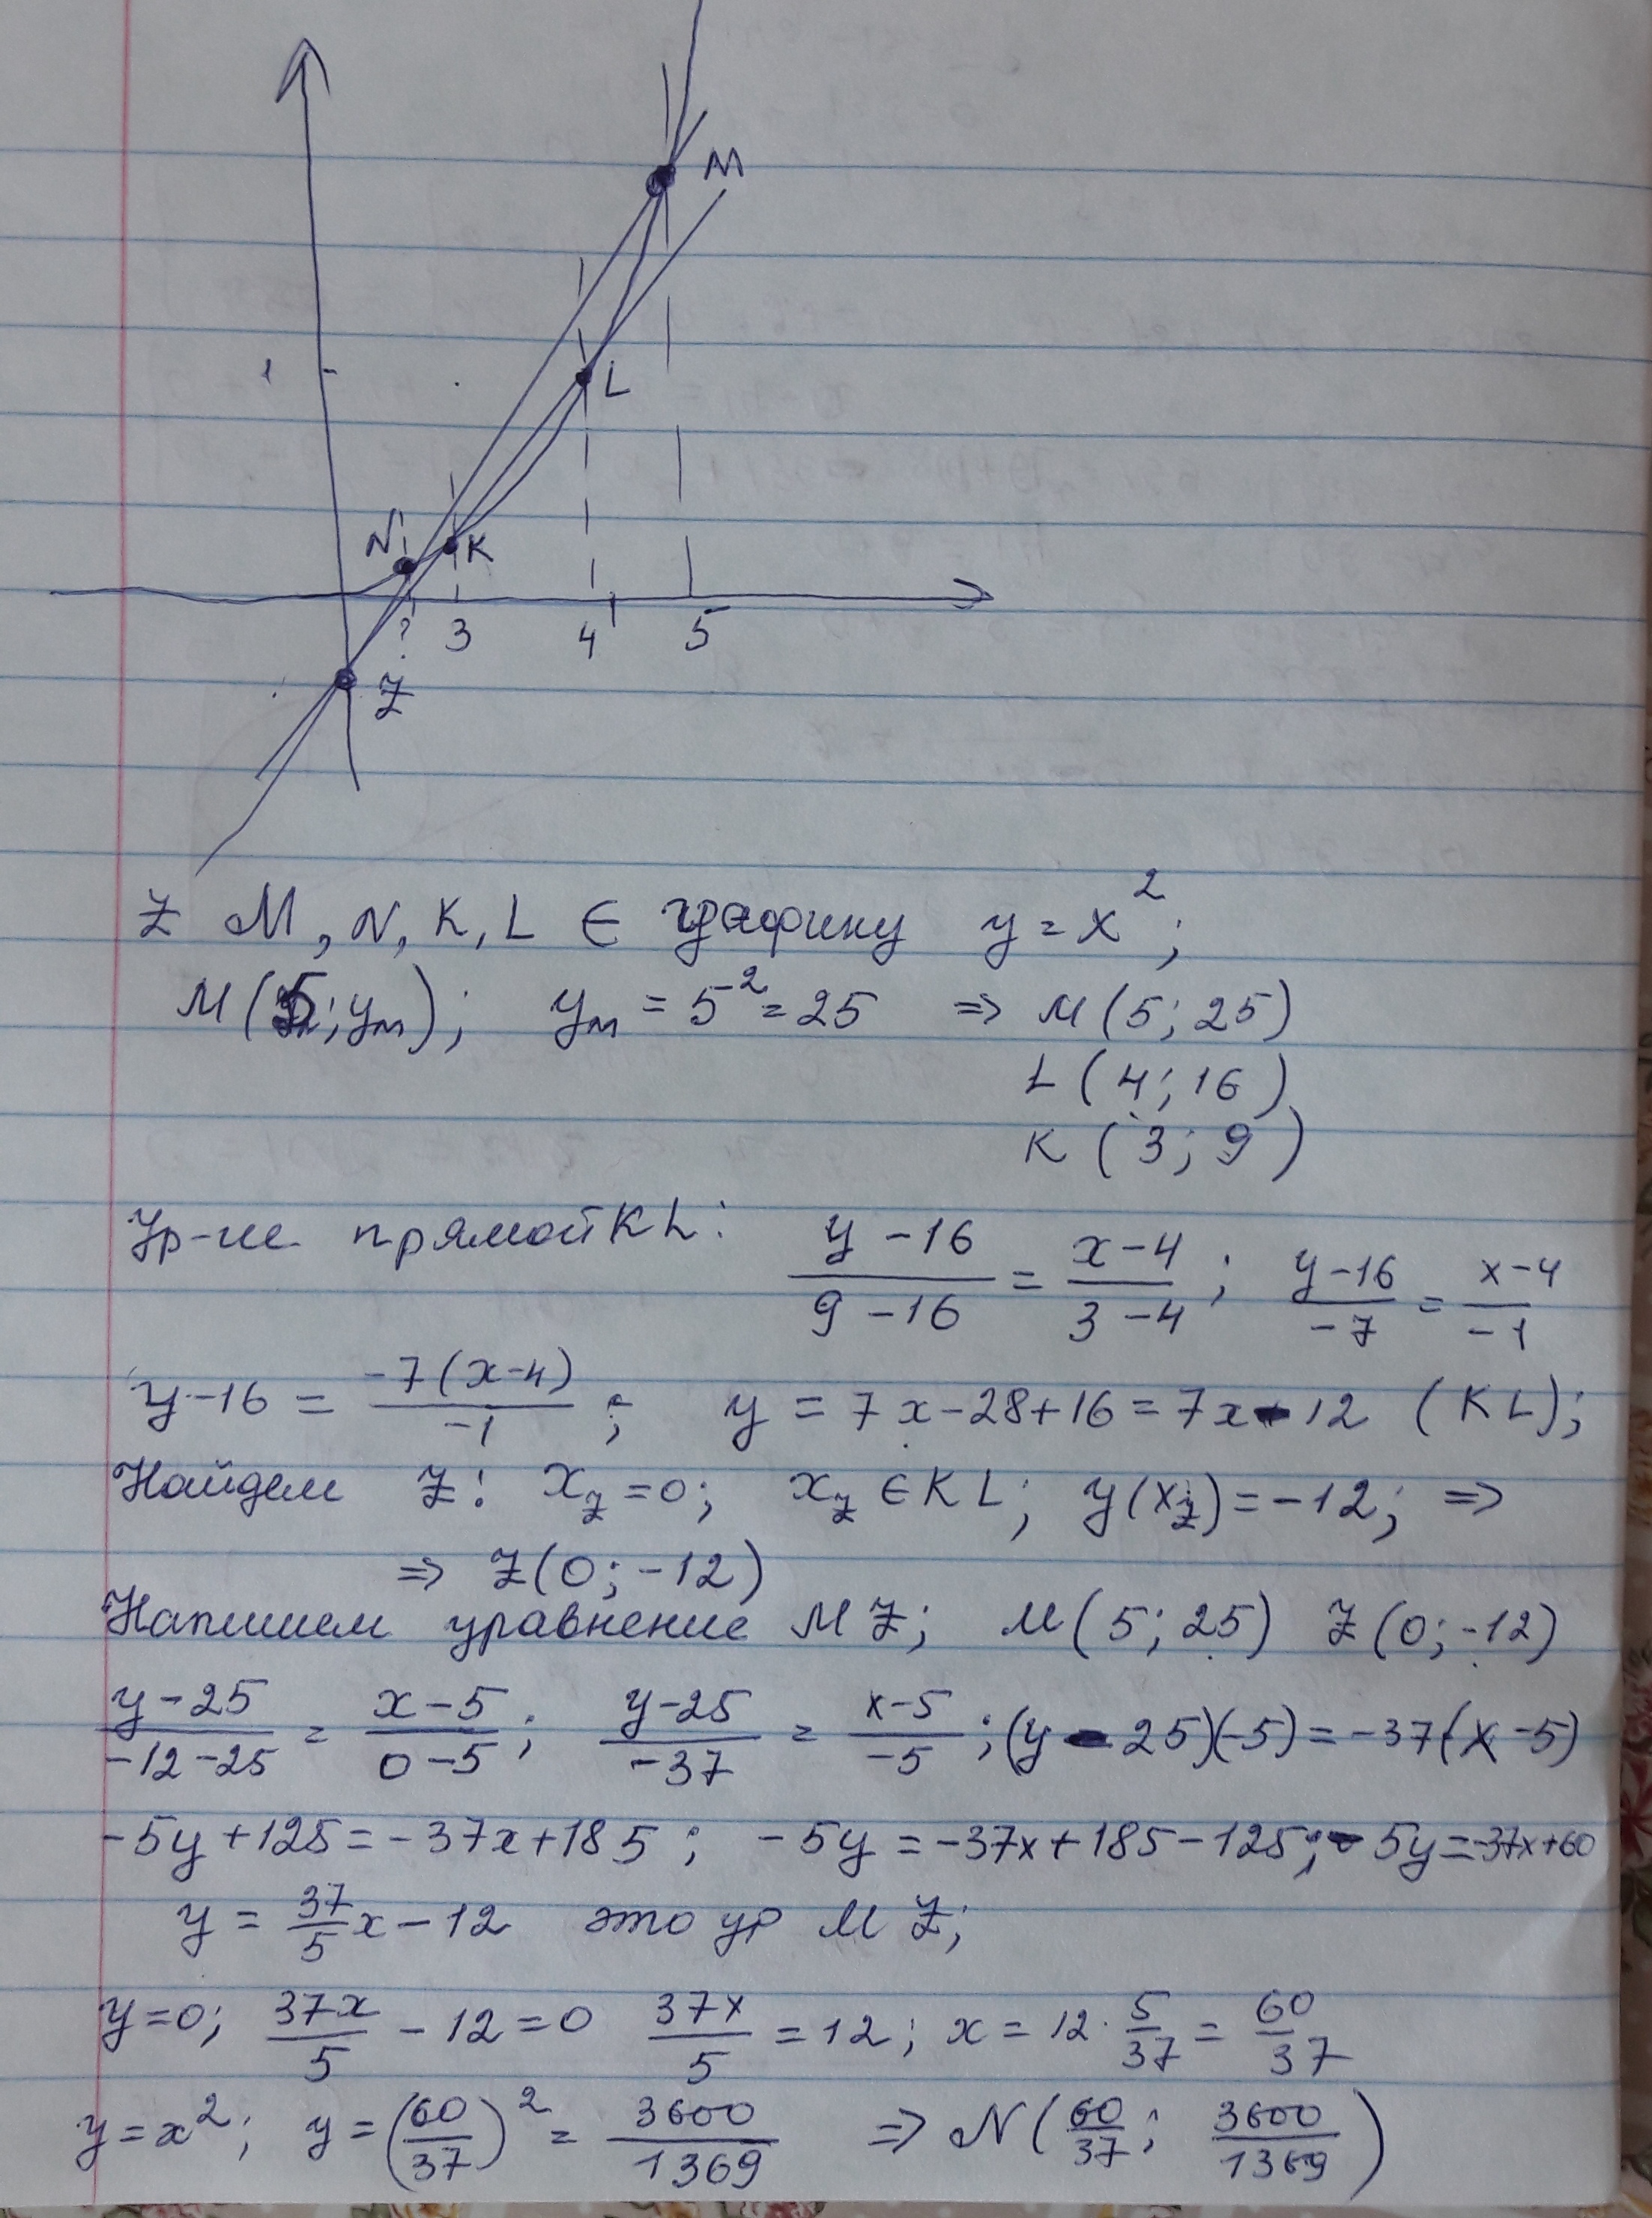 M
1
L
N K
? 3 4 5
Z
Z M, N, K, L ∈ графику y = x²;
M(5; yм); yм = 5² = 25 ⇒ M(5; 25)
L(4; 16)
K(3; 9)
Ур-ие прямой KL: (y-16)/(9-16) = (x-4)/(3-4); (y-16)/(-7) = (x-4)/(-1)
y-16 = -7(x-4)/(-1); y = 7x-28+16 = 7x-12 (KL);
Найдем Z: x_Z = 0; x_Z ∈ KL; y(x_Z) = -12; ⇒
⇒ Z(0; -12)
Напишем уравнение MZ; M(5; 25) Z(0; -12)
(y-25)/(-12-25) = (x-5)/(0-5); (y-25)/(-37) = (x-5)/(-5); (y-25)(-5) = -37(x-5)
-5y+125 = -37x+185; -5y = -37x+185-125; -5y = -37x+60
y = 37/5 x - 12 это ур MZ;
y=0; 37x/5 - 12 = 0 37x/5 = 12; x = 12 · 5/37 = 60/37
y = x²; y = (60/37)² = 3600/1369 ⇒ N(60/37; 3600/1369)